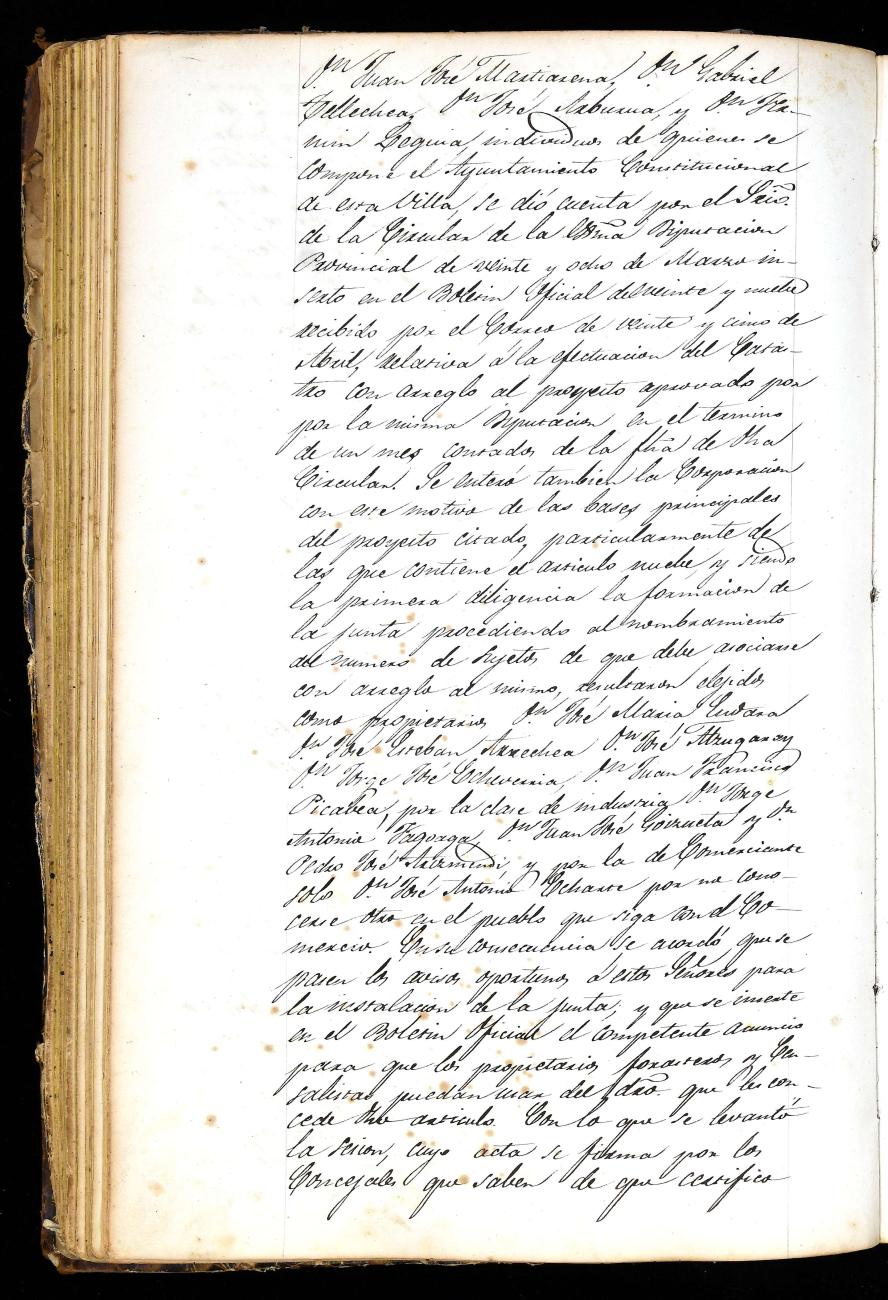 Dn Juan José Martiarena, Dn Gabriel
Tellechea, Dn José Arburua, y Dn Fer-
min Leguia, individuos de quienes se
compone el Ayuntamiento Constitucional
de esta Villa, se dió cuenta por el Srio.
de la Circular de la Exma Diputacion
Provincial de veinte y ocho de Marzo in-
serto en el Boletin Oficial del veinte y nuebe
recibido por el Correo de veinte y cinco de
Abril, relativa á la efectuacion del Catas-
tro con arreglo al proyecto aprovado por
por la misma Diputacion en el termino
de un mes contados de la fha de dha
Circular. Se enteró tambien la Corporacion
con este motivo de las bases principales
del proyecto citado, particularmente de
las que contiene el articulo nuebe, y siendo
la primera diligencia la formacion de
la junta procediendo al nombramiento
del numero de sujetos de que debe asociarse
con arreglo al mismo, resultaron elejidos
como propietarios Dn José Maria Endara
Dn José Esteban Arrechea Dn José Alzugaray
Dn Jorge José Echeverria, Dn Juan Francisco
Picabea, por la clase de industria Dn Jorge
Antonio Fagoaga, Dn Juan José Goizueta y Dn
Pedro José Arizmendi y por la de Comerciante
solo Dn José Antonio Echarte por no cono-
cerse otro en el pueblo que siga con el Co-
mercio. En su consecuencia se acordó, que se
pasen los avisos oportunos á estos Señores para
la instalacion de la junta; y que se inserte
en el Boletin Oficial el competente anuncio
para que los propietarios forasteros y Ca-
salistas puedan usar del dro. que les con-
cede dho articulo. Con lo que se levantó
la sesion, cuyo acta se firma por los
Concejales que saben de que certifico